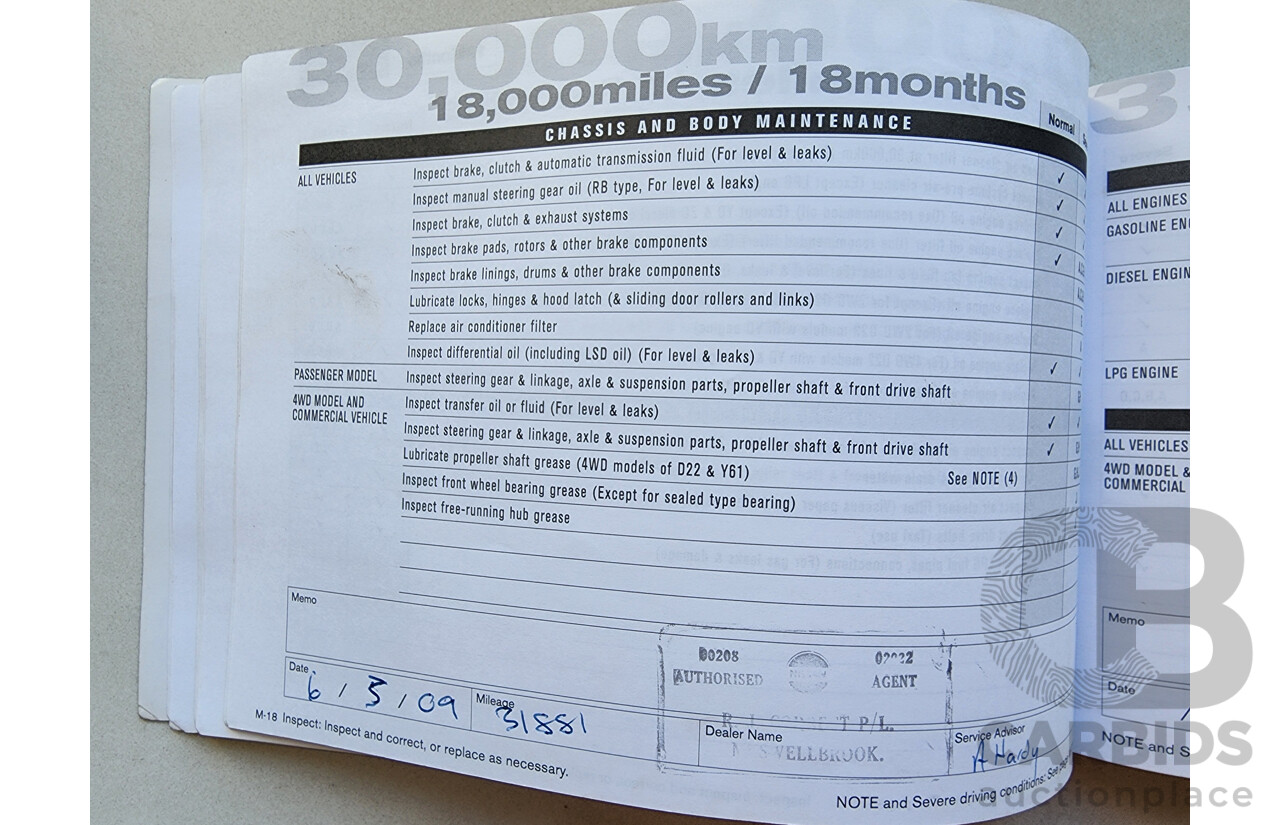 30,000km
18,000miles / 18months
CHASSIS AND BODY MAINTENANCE
Normal
ALL VEHICLES
Inspect brake, clutch & automatic transmission fluid (For level & leaks) ✓
Inspect manual steering gear oil (RB type, For level & leaks) ✓
Inspect brake, clutch & exhaust systems ✓
Inspect brake pads, rotors & other brake components ✓
Inspect brake linings, drums & other brake components
Lubricate locks, hinges & hood latch (& sliding door rollers and links)
Replace air conditioner filter
Inspect differential oil (including LSD oil) (For level & leaks) ✓
PASSENGER MODEL
Inspect steering gear & linkage, axle & suspension parts, propeller shaft & front drive shaft
4WD MODEL AND
COMMERCIAL VEHICLE
Inspect transfer oil or fluid (For level & leaks) ✓
Inspect steering gear & linkage, axle & suspension parts, propeller shaft & front drive shaft ✓
Lubricate propeller shaft grease (4WD models of D22 & Y61) See NOTE (4)
Inspect front wheel bearing grease (Except for sealed type bearing)
Inspect free-running hub grease
Memo
AUTHORISED
AGENT
P/L.
Date 6 / 3 / 09
Mileage 31881
Dealer Name
Service Advisor
A Hardy
M-18 Inspect: Inspect and correct, or replace as necessary.
NOTE and Severe driving conditions: See
ALL ENGINES
GASOLINE
DIESEL
LPG ENGINE
ALL VEHICLES
4WD MODEL &
COMMERCIAL
Memo
Date
NOTE and
CB
CARBIDS
auctionplace